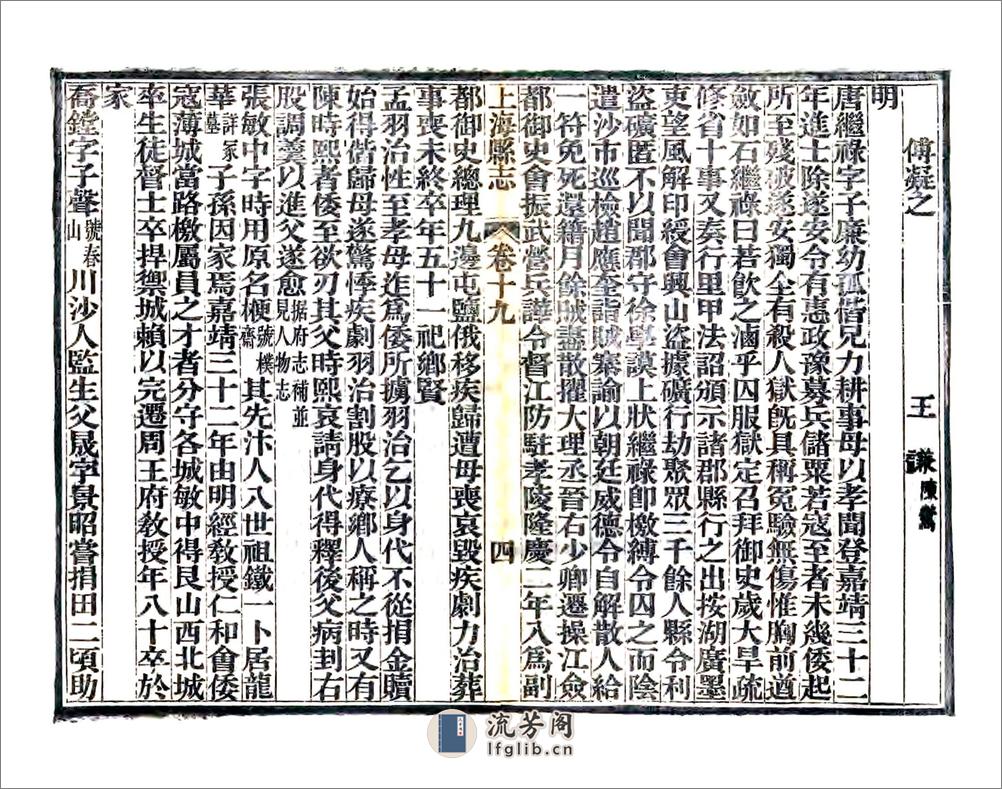 傅凝之　王謙　陳鸞
明
唐繼祿字子廉幼孤偕兄力耕事母以孝聞登嘉靖三十二
年進士除遂安令有惠政豫募兵儲粟若寇至者未幾倭起
所至殘破遂安獨全有殺人獄旣具稱冤驗無傷惟胸前遒
斂如石繼祿曰若飲之滷乎囚服獄定召拜御史歲大旱疏
修省十事又奏行里甲法詔頒示諸郡縣行之出按湖廣墨
吏望風解印綬會興山盜據礦行劫聚眾三千餘人縣令利
盜礦匿不以聞郡守徐學謨上狀繼祿卽檄縛令囚之而陰
遣沙市巡檢趙應奎詣賊寨諭以朝廷威德令自解散人給
一符免死還籍月餘賊盡散擢大理丞晉右少卿遷操江僉
都御史會振武營兵譁令督江防駐孝陵隆慶二年入爲副
上海縣志　卷十九　四
都御史總理九邊屯鹽俄移疾歸遭母喪哀毀疾劇力治葬
事喪未終卒年五十一祀鄉賢
孟羽治性至孝母迮爲倭所擄羽治乞以身代不從捐金贖
始得偕歸母遂驚悸疾劇羽治割股以療鄉人稱之時又有
陳時熙者倭至欲刃其父時熙哀請身代得釋後父病刲右
股調羹以進父遂愈據府志補並見人物志
張敏中字時用原名梗號樸齋其先汴人八世祖鐵一卜居龍
華詳冢墓子孫因家焉嘉靖三十二年由明經教授仁和會倭
寇薄城當路檄屬員之才者分守各城敏中得艮山西北城
率生徒督士卒捍禦城賴以完遷周王府教授年八十卒於
家
喬鏜字子聲號春山川沙人監生父晟字景昭嘗捐田二頃助
流芳阁
lfglib.cn